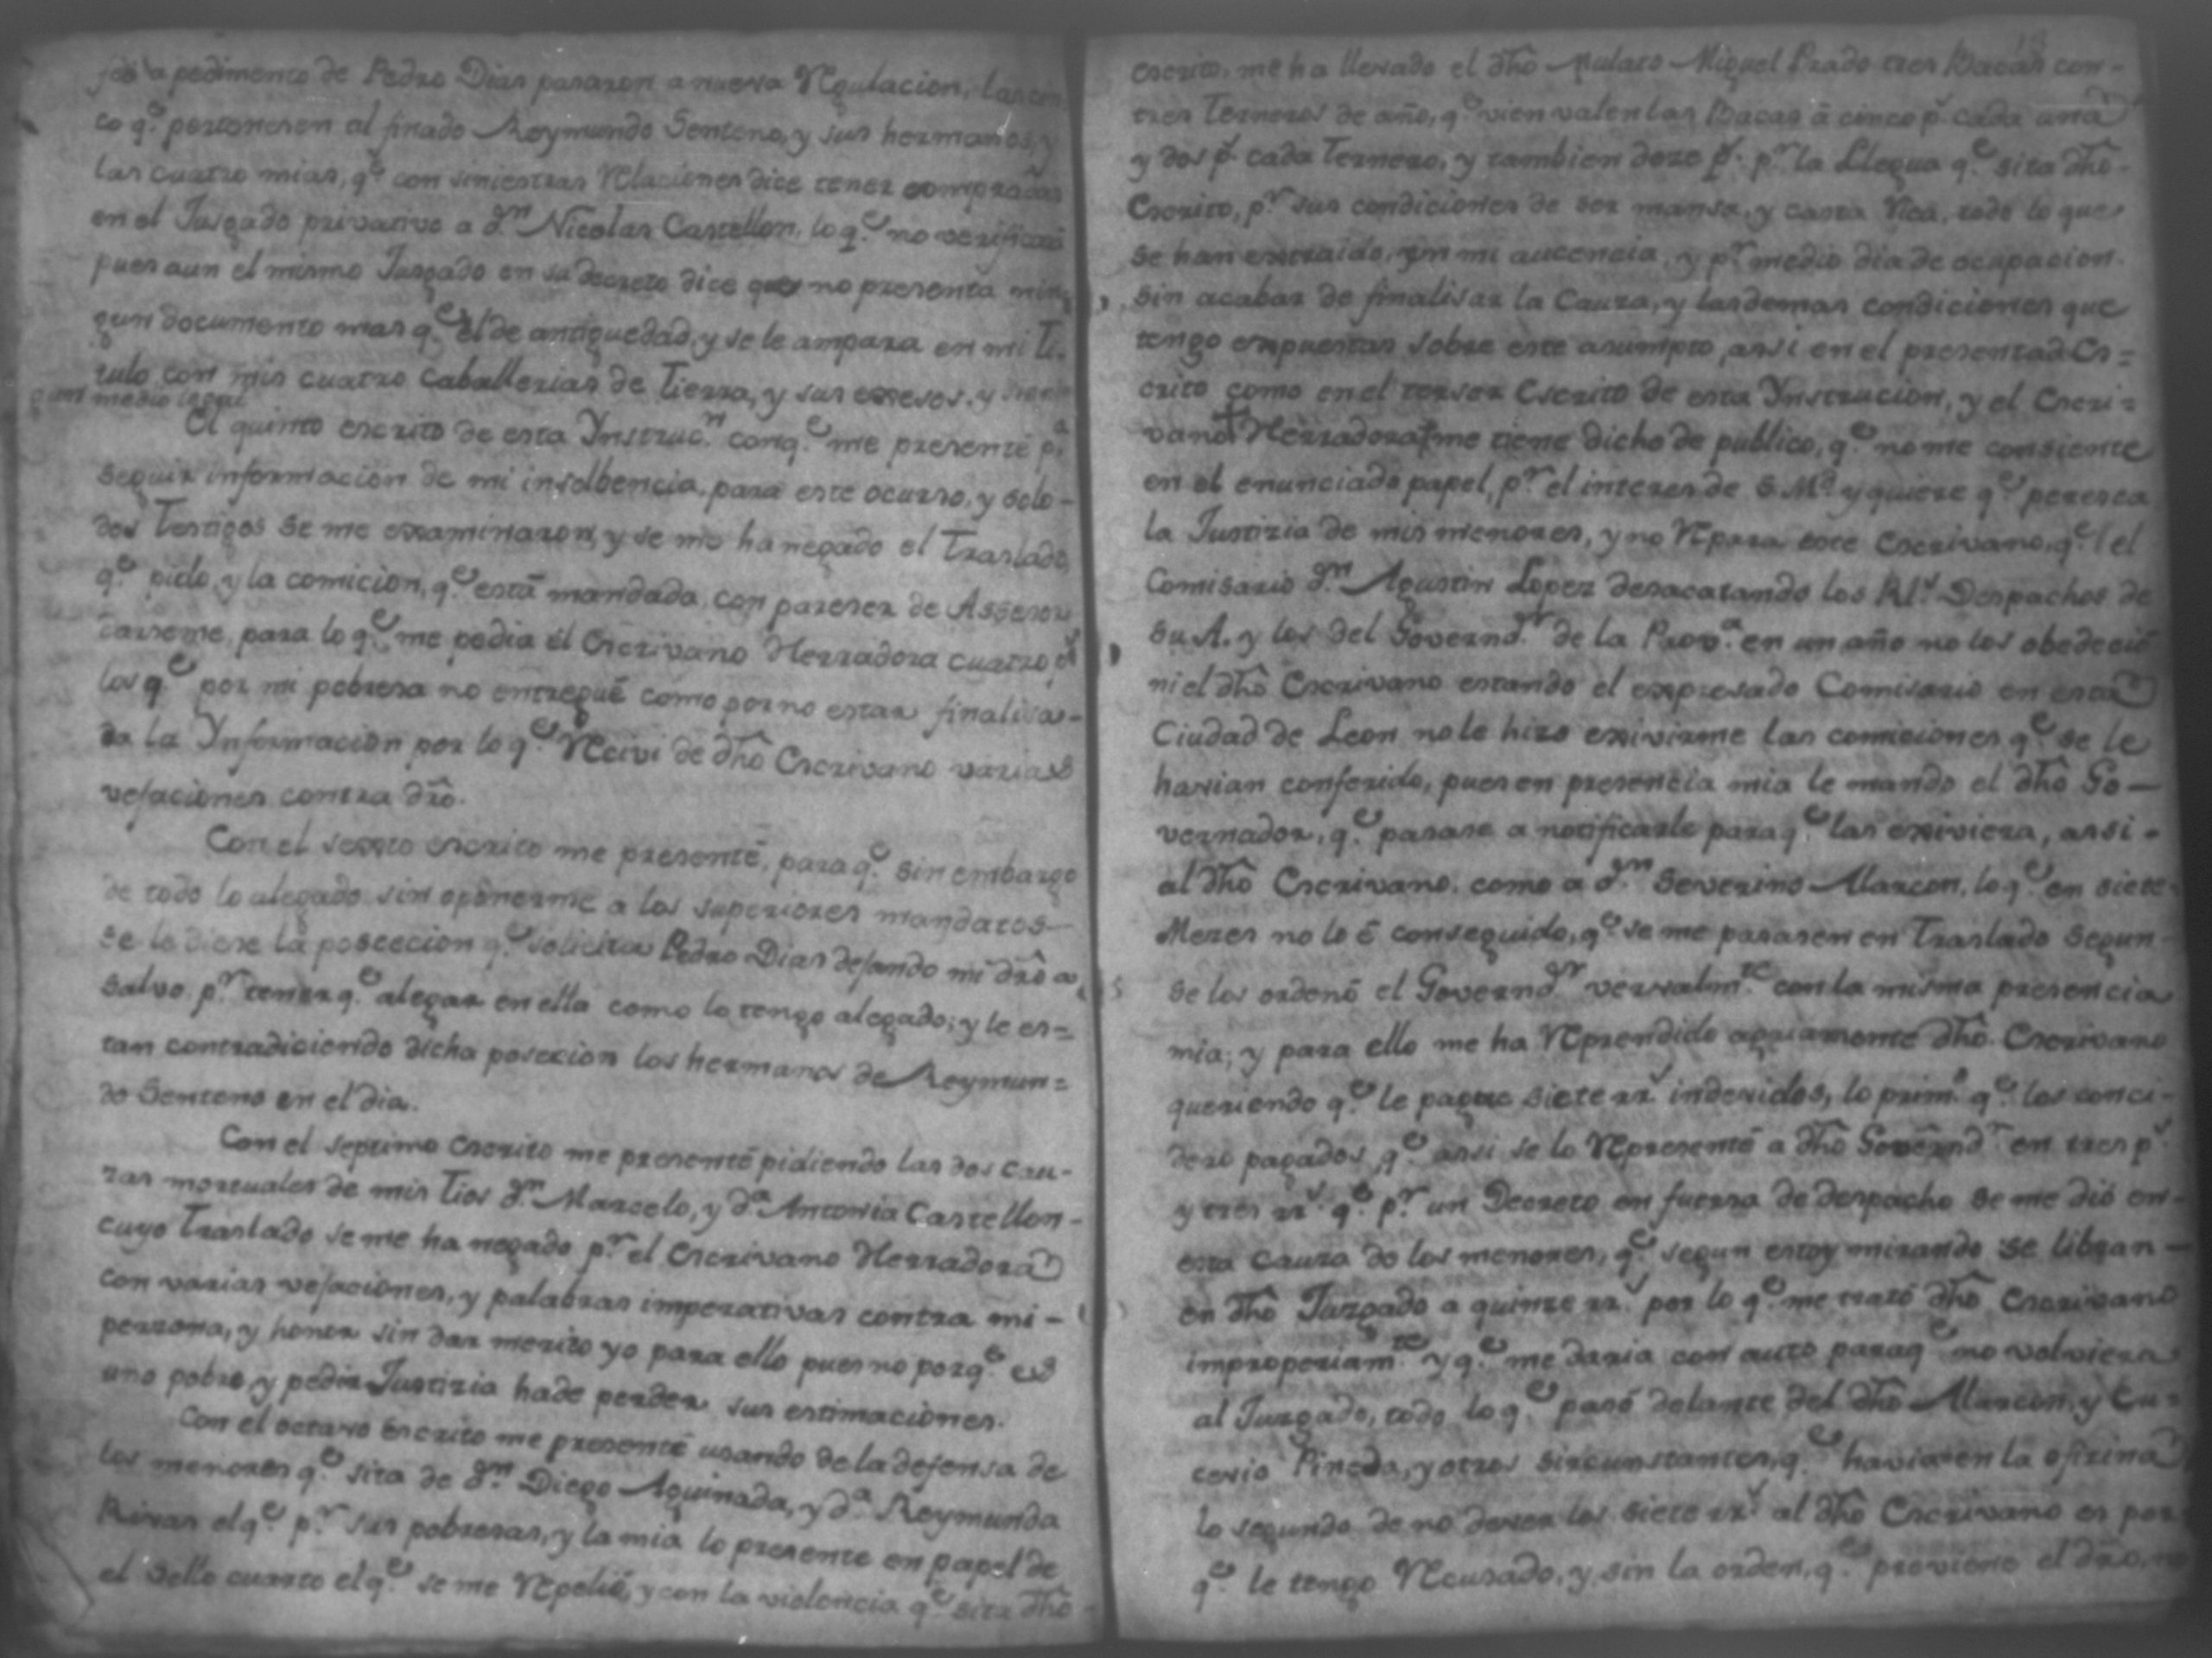 a pedimento de Pedro Dias pasaron a nueva Regulacion, las cin
co q.e pertenesen al finado Reymundo Senteno, y sus hermanos, y
las cuatro mias, q.e con siniestras Relaciones dice tener compradas
en el Jusgado privativo a d.n Nicolas Castellon, lo q.e no verificará
pues aun el mismo Jusgado en su decreto dice que no presenta nin
gun documento mas q.e el de antiguedad, y se le ampara en mi Ti.
tulo con mis cuatro caballerias de tierra, y sus exsesos, y
medio legal
El quinto escrito de esta Ynstruc.n con q.e me presenté p.a
seguir informacion de mi insolbencia, para este ocurso, y solo-
dos Testigos se me examinaron, y se me ha negado el Traslado
q.e pido, y la comicion, q.e está mandada, con pareser de Assesor
darseme, para lo q.e me pedia el Escrivano Herradora cuatro p.s
los q.e por mi pobresa no entregué como por no estar finalisa-
da la Ynformacion por lo q.e Recivi de dho Escrivano varias
vejaciones contra dro.
Con el sexto escrito me presenté, para q.e sin embargo
de todo lo alegado sin oponerme a los superiores mandatos-
se le diese la poscecion q.e solicita Pedro Dias dejando mi dro a
salvo p.r tener q.e alegar en ella como lo tengo alegado; y le es=
tan contradiciendo dicha posecion los hermanos de Reymun=
do Senteno en el dia.
Con el septimo Escrito me presenté pidiendo las dos cau-
zas mortuales de mis Tios d.n Marcelo, y d.a Antonia Castellon-
cuyo Traslado se me ha negado p.r el Escrivano Herradora
con varias vejaciones, y palabras imperativas contra mi-
perzona, y honor sin dar merito yo para ello pues no porq.e es
uno pobre, y pedir Justizia hade perder sus estimaciones.
Con el octavo Escrito me presenté usando de la defensa de
los menores q.e sita de d.n Diego Aguinada, y d.a Reymunda
Rivas el q.e p.r sus pobresas, y la mia lo presente en papel de
el sello cuarto el q.e se me Repelió, y con la violencia q.e sita dho-
Escrito, me ha llevado el dho mulato Miguel Prado tres Bacas con-
tres Terneros de año, q.e vien valen las Bacas á cinco p.s cada una
y dos p.s cada Ternero, y tambien doze p.s p.r la Llegua q.e sita dho-
Escrito, p.r sus condiciones de ser mansa, y casta rica, todo lo que
se han extraido, en mi aucencia, y p.r medio dia de ocupacion.
sin acabar de finalisar la Cauza, y las demas condiciones que
tengo expuestas sobre este asumpto, ansi en el presentad Es=
crito como en el terser Escrito de esta Ynstrucion, y el Escri=
vano Herradora me tiene dicho de publico, q.e no me consiente
en el enunciado papel, p.r el interes de S. M.d y quiere q.e peresca
la Justizia de mis menores, y no Repara este Escrivano, q.e el
Comisario d.n Agustin Lopez desacatando los Rl.s Despachos de
Su A. y los del Governd.r de la Prov.a en un año no los obedeció
ni el dho Escrivano estando el expresado Comisario en esta
Ciudad de Leon no le hizo exivirme las comiciones q.e se le
havian conferido, pues en presencia mia le mandó el dho Go-
vernador, q.e pasase a notificarle para q.e las exiviera, ansi-
al dho Escrivano, como á d.n Severino Alarcon, lo q.e en siete
Mezes no lo é conseguido, q.e se me pasasen en Traslado segun-
se los ordenó el Governd.r vervalm.te con la misma presencia
mia; y para ello me ha Reprendido agriamente dho. Escrivano
queriendo q.e le pague siete rr.s indevidos, lo prim.o q.e los conci-
dero pagados, q.e ansi se lo Represente a dho Governd.r en tres p.s
y tres rr.s q.e p.r un Decreto en fuerza de despacho se me dió en-
esta cauza de los menores, q.e segun estoy mirando se libran-
en dho Juzgado a quinze rr.s por lo q.e me trató dho Escrivano
improperiam.te y q.e me daria con auto paraq.e no volviera
al Juzgado, todo lo q.e pasó delante del dho Alarcon, y Eu=
cevio Pineda, y otros sircunstantes, q.e havia en la ofizina
lo segundo de no dever los siete rr.s al dho Escrivano es por
q.e le tengo Recusado, y sin la orden, q.e previene el dro,